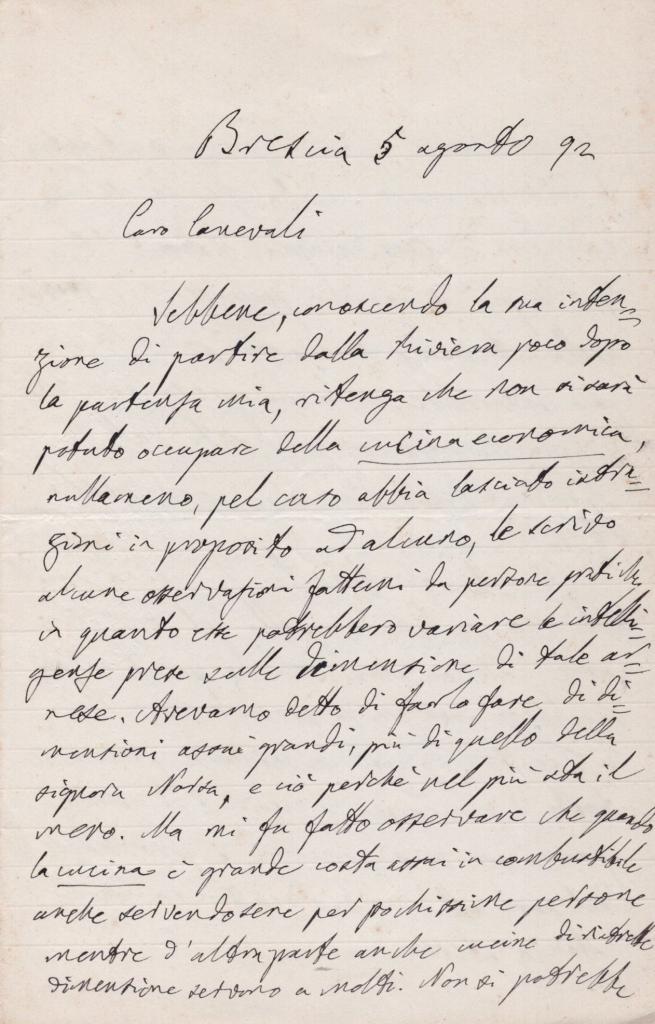 Brescia 5 agosto 92
Caro Canevali
Sebbene, conoscendo la sua inten=
zione di partire dalla Riviera poco dopo
la partenza mia, ritenga che non si sarà
potuto occupare della cucina economica,
nullameno, pel caso abbia lasciato istru=
zioni in proposito ad alcuno, le scrivo
alcune osservazioni fattemi da persone pratiche
in quanto esse potrebbero variare le intelli=
genze prese sulle dimensione di tale ar=
nese. Avevamo detto di farlo fare di di=
mensioni assai grandi, più di quello della
signora Norsa, e ciò perchè nel più sta il
meno. Ma mi fu fatto osservare che quando
la cucina è grande costa assai in combustibile
anche servendosene per pochissime persone
mentre d'altra parte anche cucine di ristrette
dimensione servono a molti. Non si potrebbe